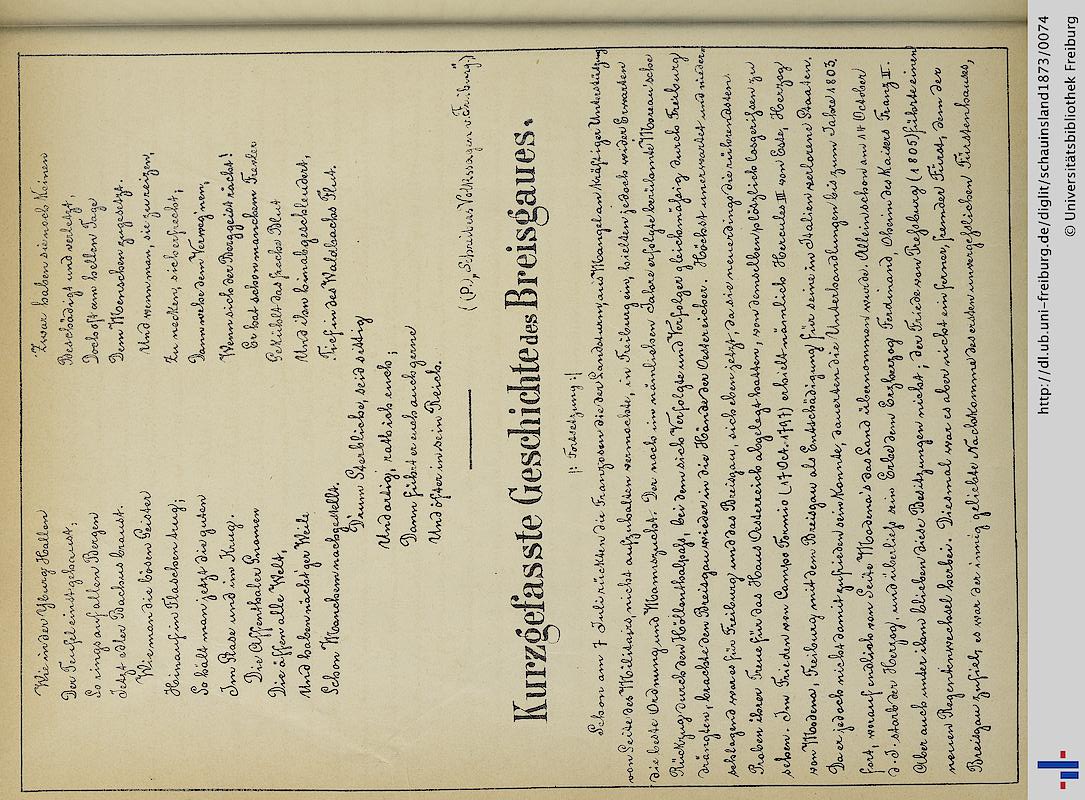 Wie in der Yburg Hallen
Der Teufel einst gehaust,
So rings auf allen Bergen
Jetzt edler Bachus braust.
Wie man die bösen Geister
Hinauf in Flaschen trug;
So hält man jetzt die guten
Im Fasse und im Krug.
Die Affenthaler Gnomen
Die äffen alle Welt,
Und haben nächt'ger Weile
Schon Manchem nachgestellt.
Zwar haben sie noch Keinen
Beschädigt und verletzt,
Doch oft am hellen Tage
Dem Menschen zugesetzt.
Und wenn man, sie zu reizen,
Zu necken, sich erfrecht,
Dann wehe dem Verweg'nen,
Wenn sich der Berggeist rächt!
Er hat schon manchem Frevler
Gekühlt das freche Blut
Und ihn hinabgeschleudert,
Tief in des Waldbachs Flut.
Drum Sterbliche, seid sittig
Und artig, rath ich euch;
Dann führt er euch auch gerne
Und öfter in sein Reich.
(P., Schreibers Volkssagen v. Freiburg.)
Kurzgefasste Geschichte des Breisgaues.
|: Fortsetzung :|
Schon am 7 Juli rückten die Franzosen die der Landsturm, aus Mangel an kräftiger Unterstützung
von Seite des Militairs, nicht aufzuhalten vermochte, in Freiburg ein, hielten jedoch wider Erwarten
die beste Ordnung und Mannszucht. Der noch im nämlichen Jahre erfolgte berühmte Moreau'sche
Rückzug durch den Höllenthalpaß, bei dem sich Verfolgte und Verfolger gleichmäßig durch Freiburg
drängten, brachte den Breisgau wieder in die Hände der Oestereicher. Höchst unerwartet und nieder
schlagend war es für Freiburg und das Breisgau, sich eben jetzt, da sie neuerdings die rührendsten
Proben ihrer Treue für das Haus Österreich abgelegt hatten, von demselben plözlich losgerißen zu
sehen. Im Frieden von Campo Formio (17 Oct. 1797) erhielt nämlich Hercules III von Este, Herzog
von Modena, Freiburg mit dem Breisgau als Entschädigung für seine in Italien verlorene Staaten.
Da er jedoch nicht damit zufrieden sein konnte, dauerten die Unterhandlungen bis zum Jahre 1803,
fort, worauf endlich von Seite Modena's das Land übernommen wurde. Allein schon am 14 October
d. J. starb der Herzog, und überließ sein Erbe dem Erzherzog Ferdinand, Oheim des Kaisers Franz II.
Aber auch unter ihm blieben diese Besitzungen nicht; der Friede von Preßburg (1805) führte einen
neuen Regentenwechsel herbei. Diesmal war es aber nicht ein ferner, fremder Fürst, dem der
Breisgau zufiel, es war der innig geliebte Nachkomme des ersten unvergeßlichen Fürstenhauses,
http://dl.ub.uni-freiburg.de/diglit/schauinsland1873/0074
© Universitätsbibliothek Freiburg